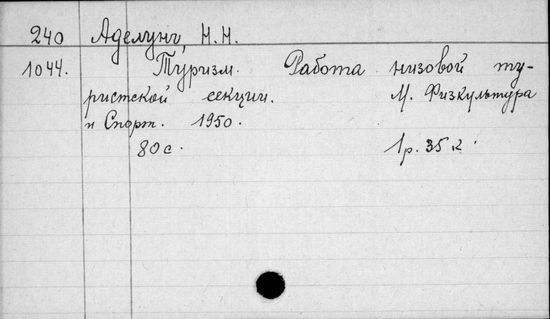 240 Аделунг, Н.Н.
1044. Туризм. Работа низовой ту-
ристской секции. М. Физкультура
и Спорт. 1950.
80с. 1р. 35к.